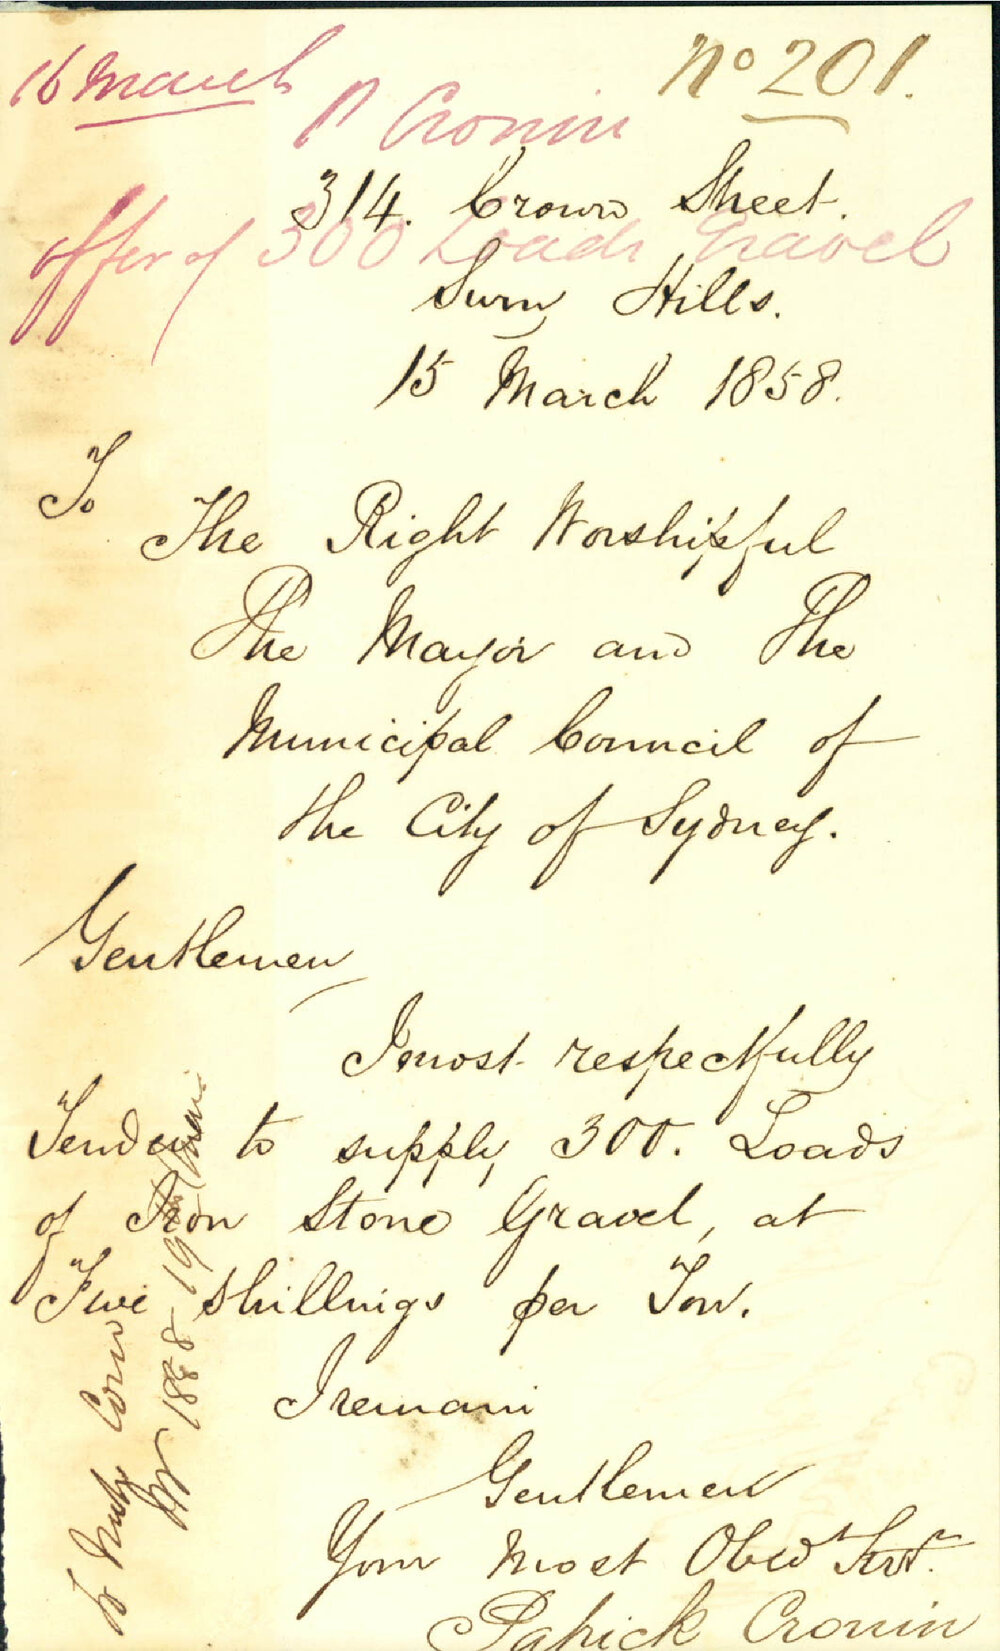 16 March
No 201.
P Cronin
314. Crown Street.
offer of 300 Loads Gravel
Surry Hills.
15 March 1858.
To
The Right Worshipful
The Mayor and The
Municipal Council of
the City of Sydney.
Gentlemen
I most respectfully
Tender to supply 300. Loads
of Iron Stone Gravel, at
Five Shillings per Ton.
I remain
Gentlemen
Your Most Obedt Servt.
Patrick Cronin